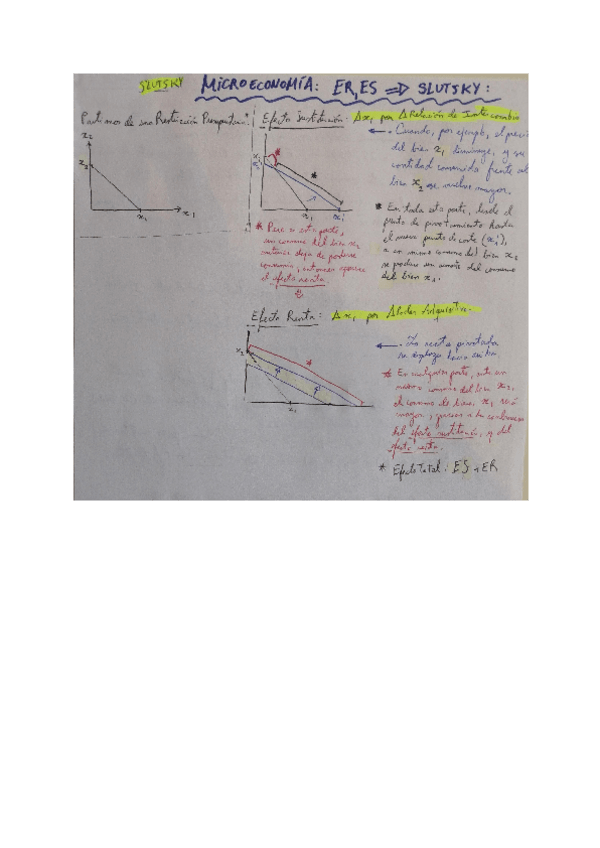 SLUTSKY MICROECONOMÍA: ER, ES ⇒ SLUTSKY:
Partimos de una Restricción Presupuestaria:
x2
x2
x1
x1
Efecto Sustitución: Δx1 por Δ Relación de Intercambio
x1
x1'
*
*
← · Cuando, por ejemplo, el precio
del bien x1 disminuye, y su
cantidad consumida frente al
bien x2 es mucho mayor.
* En toda esta parte, desde el
punto de pivotamiento hasta
el nuevo punto de corte (x1'),
a un mismo consumo del bien x2
se produce un aumento del consumo
del bien x1.
* Pero en esta parte,
un consumo del bien x2
deja de poderse
consumir, entonces aparece
el efecto renta.
Efecto Renta: Δx1 por Δ Poder Adquisitivo.
x2
x1
*
← · La recta pivotada
se desplaza hacia arriba.
* En cualquier parte, ante un
mismo consumo del bien x2,
el consumo de bien x1 será
mayor, gracias a la combinación
del efecto sustitución, y del
efecto renta.
* Efecto Total: ES + ER